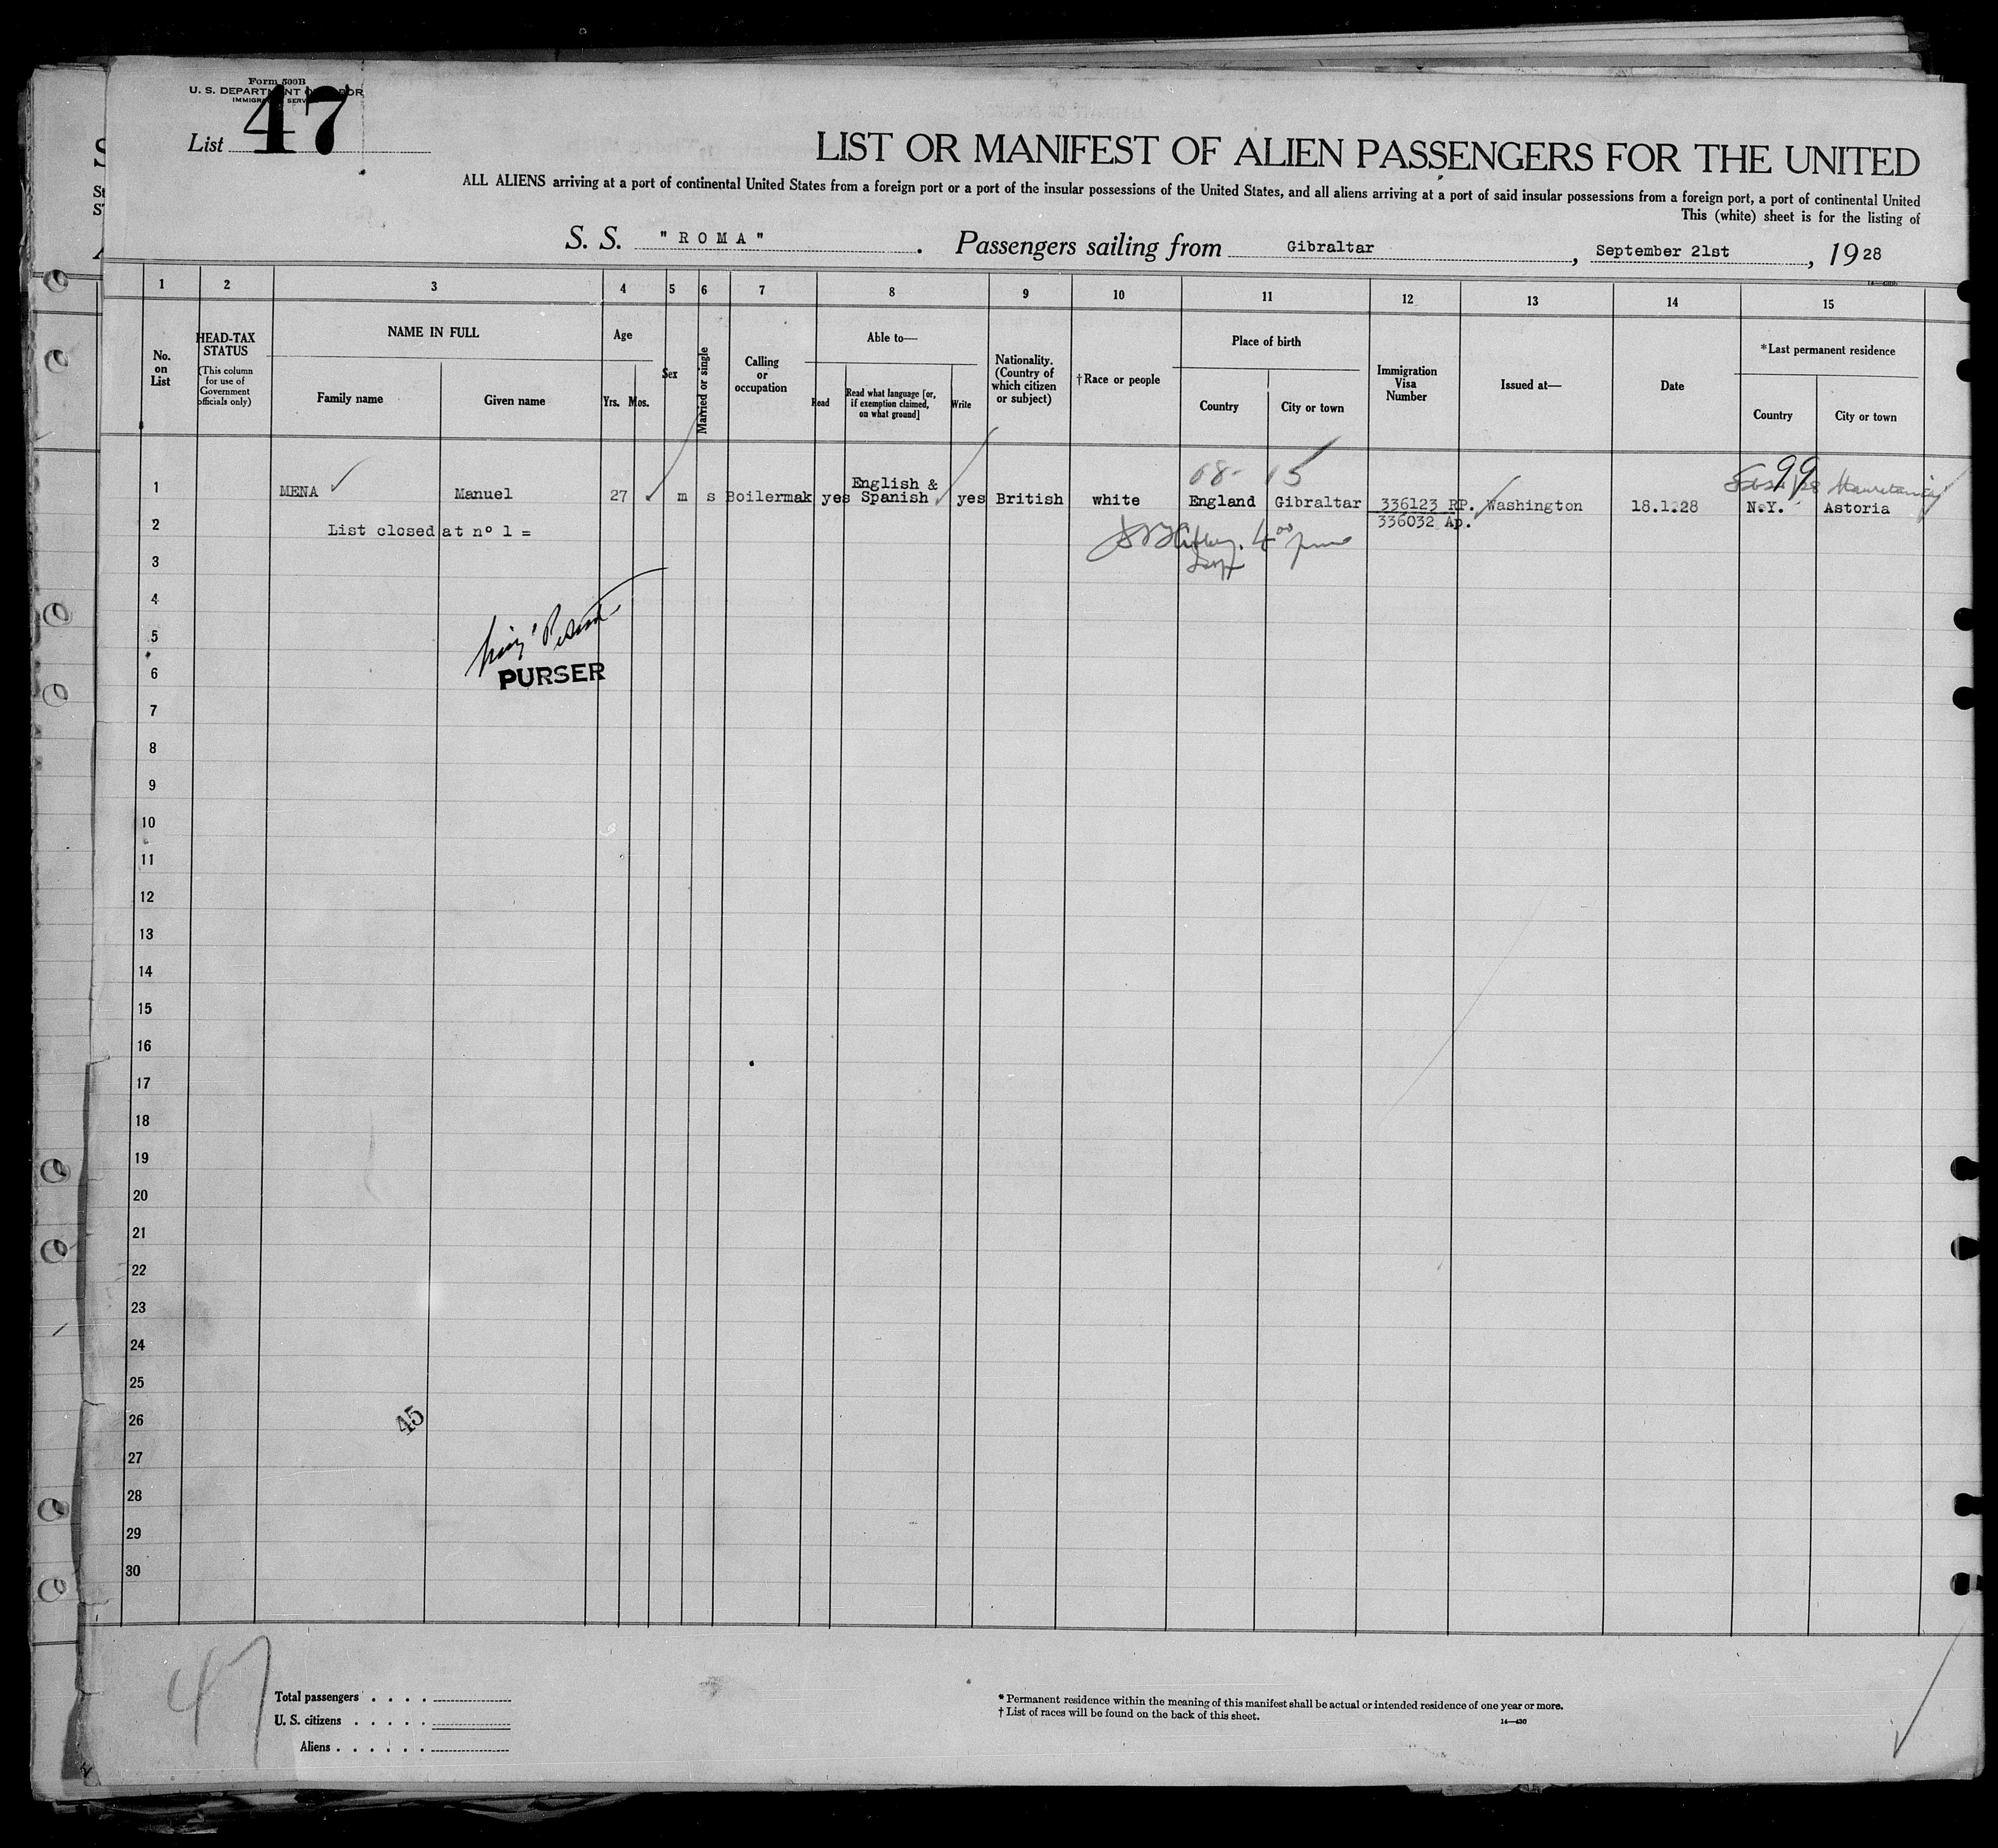 Form 500B
U. S. DEPARTMENT OF LABOR
IMMIGRATION SERVICE
List 47
LIST OR MANIFEST OF ALIEN PASSENGERS FOR THE UNITED
ALL ALIENS arriving at a port of continental United States from a foreign port or a port of the insular possessions of the United States, and all aliens arriving at a port of said insular possessions from a foreign port, a port of continental United
This (white) sheet is for the listing of
S. S. "ROMA". Passengers sailing from Gibraltar, September 21st, 1928
1 2 3 4 5 6 7 8 9 10 11 12 13 14 15
No. on List
HEAD-TAX STATUS
(This column for use of Government officials only)
NAME IN FULL
Family name Given name
Age
Yrs. Mos.
Sex
Married or single
Calling or occupation
Able to—
Read
Read what language [or, if exemption claimed, on what ground]
Write
Nationality. (Country of which citizen or subject)
†Race or people
Place of birth
Country City or town
Immigration Visa Number
Issued at—
Date
*Last permanent residence
Country City or town
68- 15 99
1 MENA Manuel 27 m s Boilermak yes English & Spanish yes British white England Gibraltar 336123 RP. Washington 18.1.28 N.Y. Astoria
336032 Ap.
2 List closed at nº 1 =
3
4
5
6
PURSER
7
8
9
10
11
12
13
14
15
16
17
18
19
20
21
22
23
24
25
26
45
27
28
29
30
47
Total passengers . . . .
U. S. citizens . . . . .
Aliens . . . . . .
* Permanent residence within the meaning of this manifest shall be actual or intended residence of one year or more.
† List of races will be found on the back of this sheet.
14—430